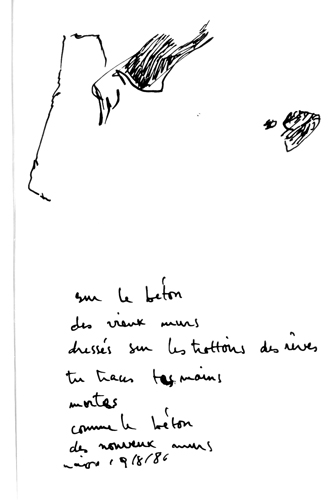 sur le béton
des vieux murs
dressés sur les trottoirs des rêves
tu traces tes mains
mortes
comme le béton
des nouveaux murs
19/8/86